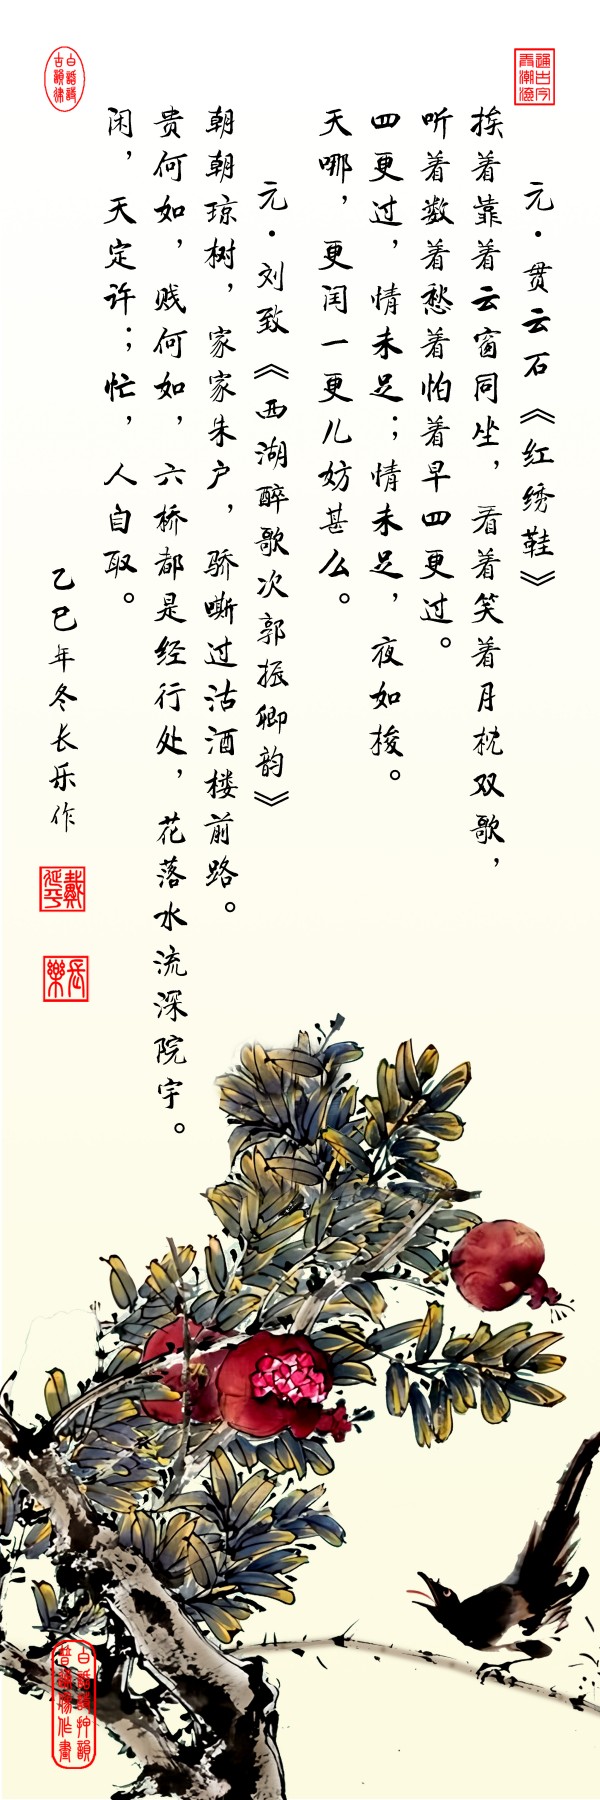 元·贯云石《红绣鞋》
挨着靠着云窗同坐，看着笑着月枕双歌，
听着数着愁着怕着早四更过。
四更过，情未足；情未足，夜如梭。
天哪，更闰一更儿妨甚么。
元·刘致《西湖醉歌次郭振卿韵》
朝朝琼树，家家朱户，骄嘶过沽酒楼前路。
贵何如，贱何如，六桥都是经行处，花落水流深院宇。
闲，天定许；忙，人自取。
乙巳年冬长乐作
白話詩
古韻律
長樂